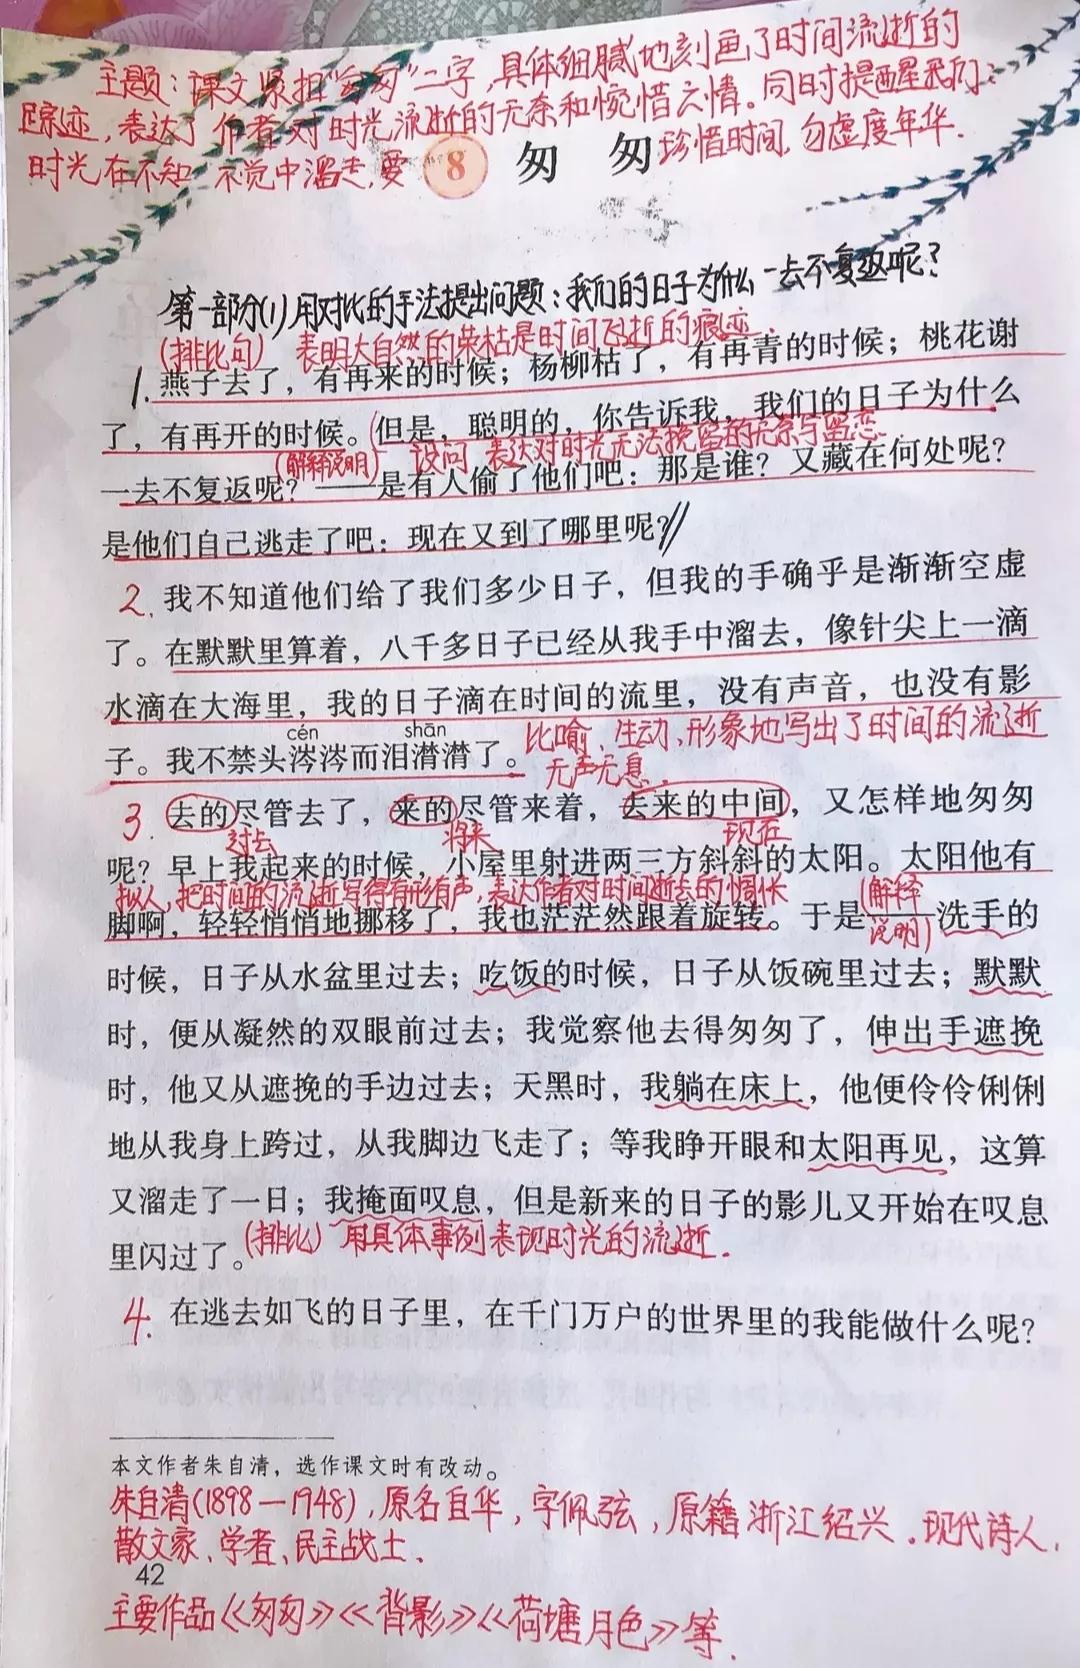 主题：课文紧扣“匆匆”二字，具体细腻地刻画了时间流逝的
踪迹，表达了作者对时光流逝的无奈和惋惜之情。同时提醒我们：
时光在不知不觉中溜走，要珍惜时间，勿虚度年华.
8 匆 匆
第一部分(1)用对比的手法提出问题：我们的日子为什么一去不复返呢？
(排比句) 表明大自然的荣枯是时间飞逝的痕迹.
1. 燕子去了，有再来的时候；杨柳枯了，有再青的时候；桃花谢
了，有再开的时候。(但是，聪明的，你告诉我，我们的日子为什么
(解释说明) 设问 表达对时光无法挽留的无奈与留恋
一去不复返呢？——是有人偷了他们吧：那是谁？又藏在何处呢？
是他们自己逃走了吧：现在又到了哪里呢？//
2. 我不知道他们给了我们多少日子，但我的手确乎是渐渐空虚
了。在默默里算着，八千多日子已经从我手中溜去，像针尖上一滴
水滴在大海里，我的日子滴在时间的流里，没有声音，也没有影
cén shān
子。我不禁头涔涔而泪潸潸了。
比喻、生动、形象地写出了时间的流逝
无声无息.
3. 去的尽管去了，来的尽管来着，去来的中间，又怎样地匆匆
过去 将来 现在
呢？早上我起来的时候，小屋里射进两三方斜斜的太阳。太阳他有
拟人，把时间的流逝写得有形有声，表达作者对时间逝去的惆怅 (解释
说明)
脚啊，轻轻悄悄地挪移了，我也茫茫然跟着旋转。于是——洗手的
时候，日子从水盆里过去；吃饭的时候，日子从饭碗里过去；默默
时，便从凝然的双眼前过去；我觉察他去得匆匆了，伸出手遮挽
时，他又从遮挽的手边过去；天黑时，我躺在床上，他便伶伶俐俐
地从我身上跨过，从我脚边飞走了；等我睁开眼和太阳再见，这算
又溜走了一日；我掩面叹息，但是新来的日子的影儿又开始在叹息
里闪过了。
(排比) 用具体事例表现时光的流逝.
4. 在逃去如飞的日子里，在千门万户的世界里的我能做什么呢？
本文作者朱自清，选作课文时有改动。
朱自清(1898—1948)，原名自华，字佩弦，原籍浙江绍兴.现代诗人，
散文家、学者、民主战士.
42
主要作品《匆匆》《背影》《荷塘月色》等.